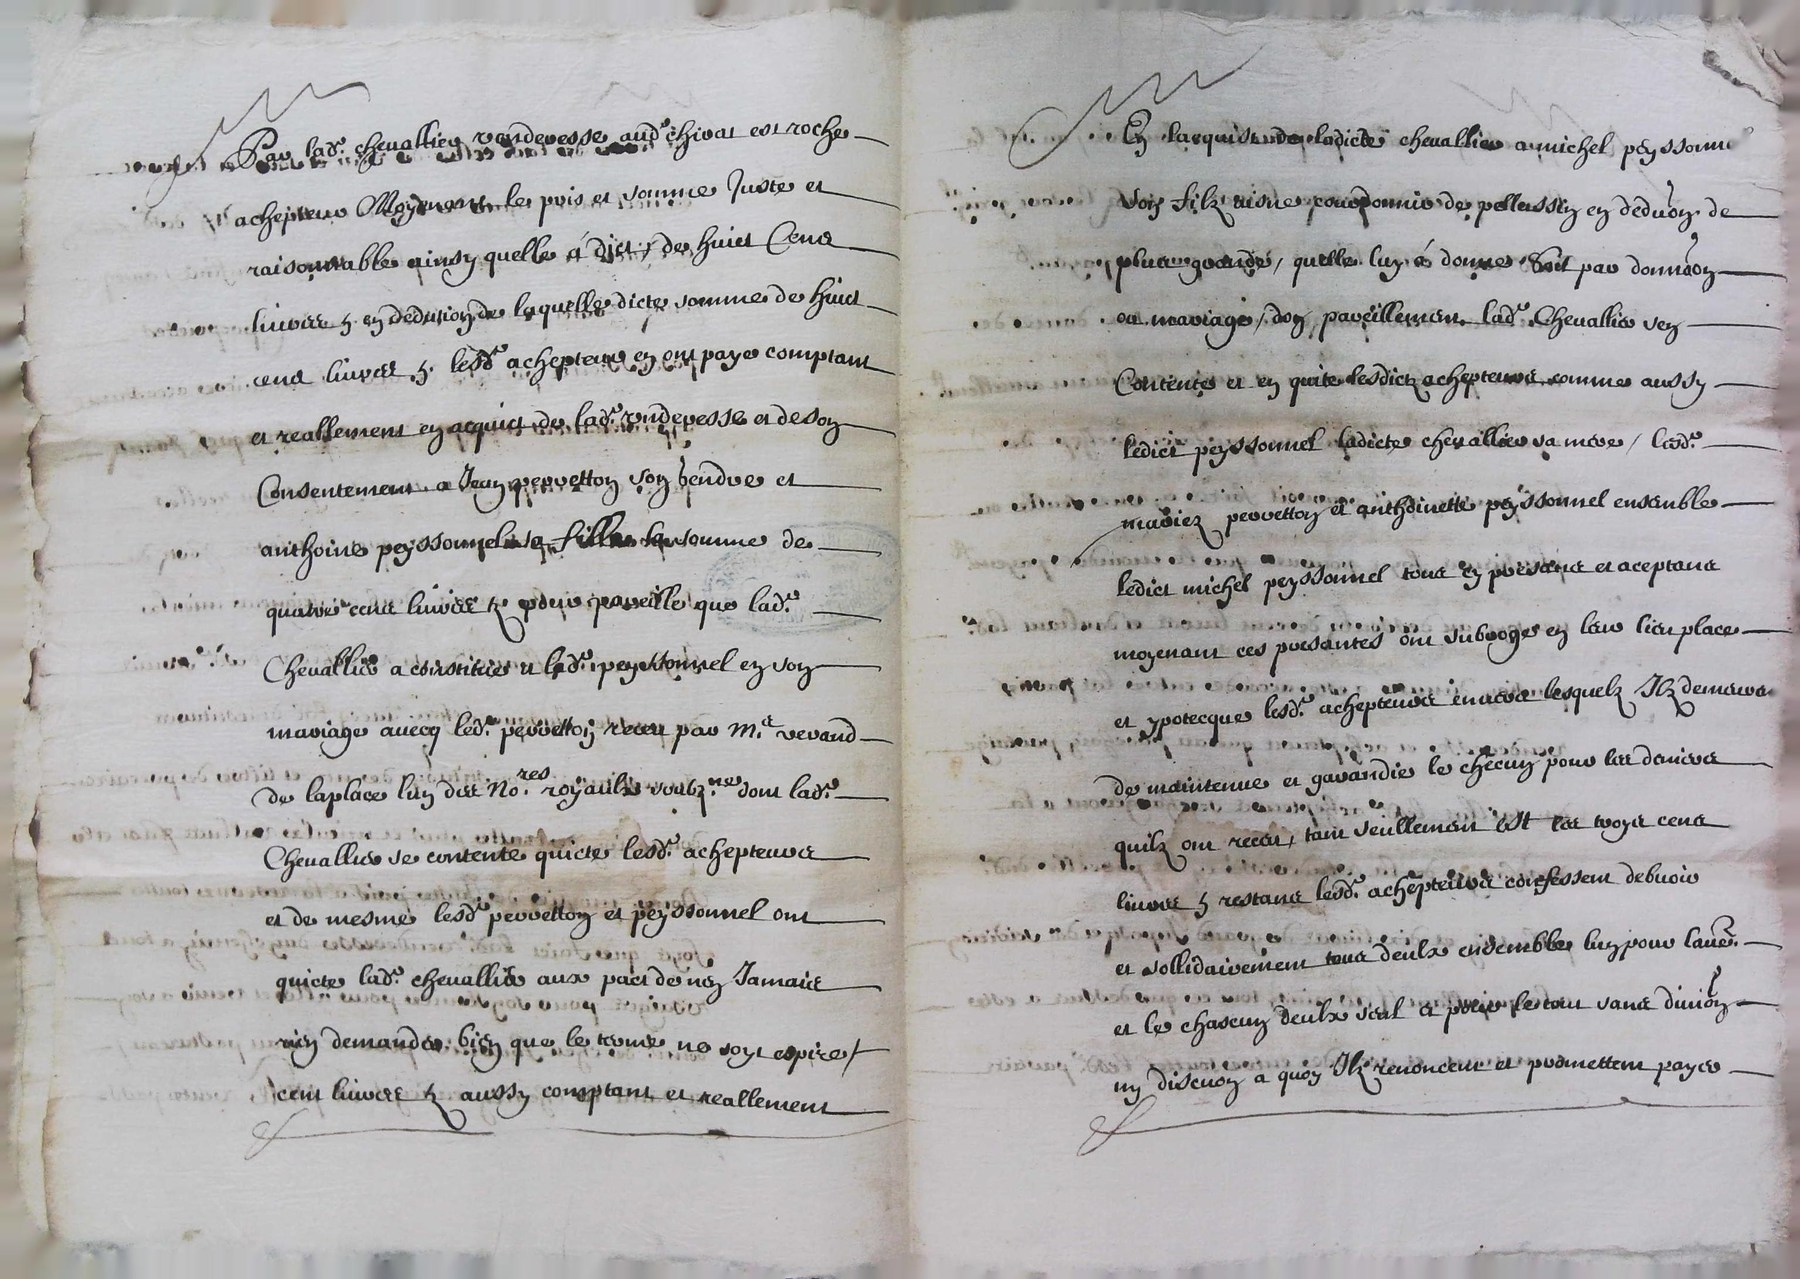 Par lad.e chevallier venderesse aud.e chivat est roche
achepteur Moyenant le pris et somme Juste et
raisonnable ainsy quelle á dict / de huict Cens
livres et en deduction de laquelle dicte somme de huict
cens livres lesd.e achepteurs en ont paye comptant
et reallement en acquict de lad.e venderesse et de son
Consentement a Jean perretton son gendre et
anthoine peyssonnel sa fille la somme de
quatre cens livres pour pareille que lad.e
Chevallier a constitues a lad.e peyssonnel en son
mariage avecq led.e perretton receu par M.e verand
de laplace luy des No.res royaulx soubz.nes dont lad.e
Chevallier se contente quicte lesd.e achepteurs
et de mesme lesd.e perretton et peyssonnel ont
quicte lad.e chevallier aux pact de nen Jamais
rien demander bien que le terme ne soyt espire /
cent livres aussy comptant et reallement
En lacquist de ladicte chevallier a michel peyssonnel
son filz aisne cordonnier de pellussin en deduon de
plus grande / quelle luy á donne Soit par donnaon
ou mariage / don pareillement lad.e Chevallier sen
Contente et en quite lesdictz achepteurs comme aussy
ledict peyssonnel ladicte chevallier sa mere / lesd.e
mariez perretton et anthoinette peyssonnel ensemble
ledict michel peyssonnel tous en presence et aceptans
moyenant ces presantes ont subroge en leur lieu place
et ypotecque lesd.e achepteurs envers lesquelz Ilz demeure
de maintenue et garandie le checun pour les deniers
quilz ont receu, tant seullement Et les troys cens
livres restans lesd.e achepteurs confessent debvoir
et sollidairement tous deulx ensemble lung pour laue.
et le chascun deulx seul et pour le tout sans division
ny discuon a quoy Ilz renoncent et promettent payer